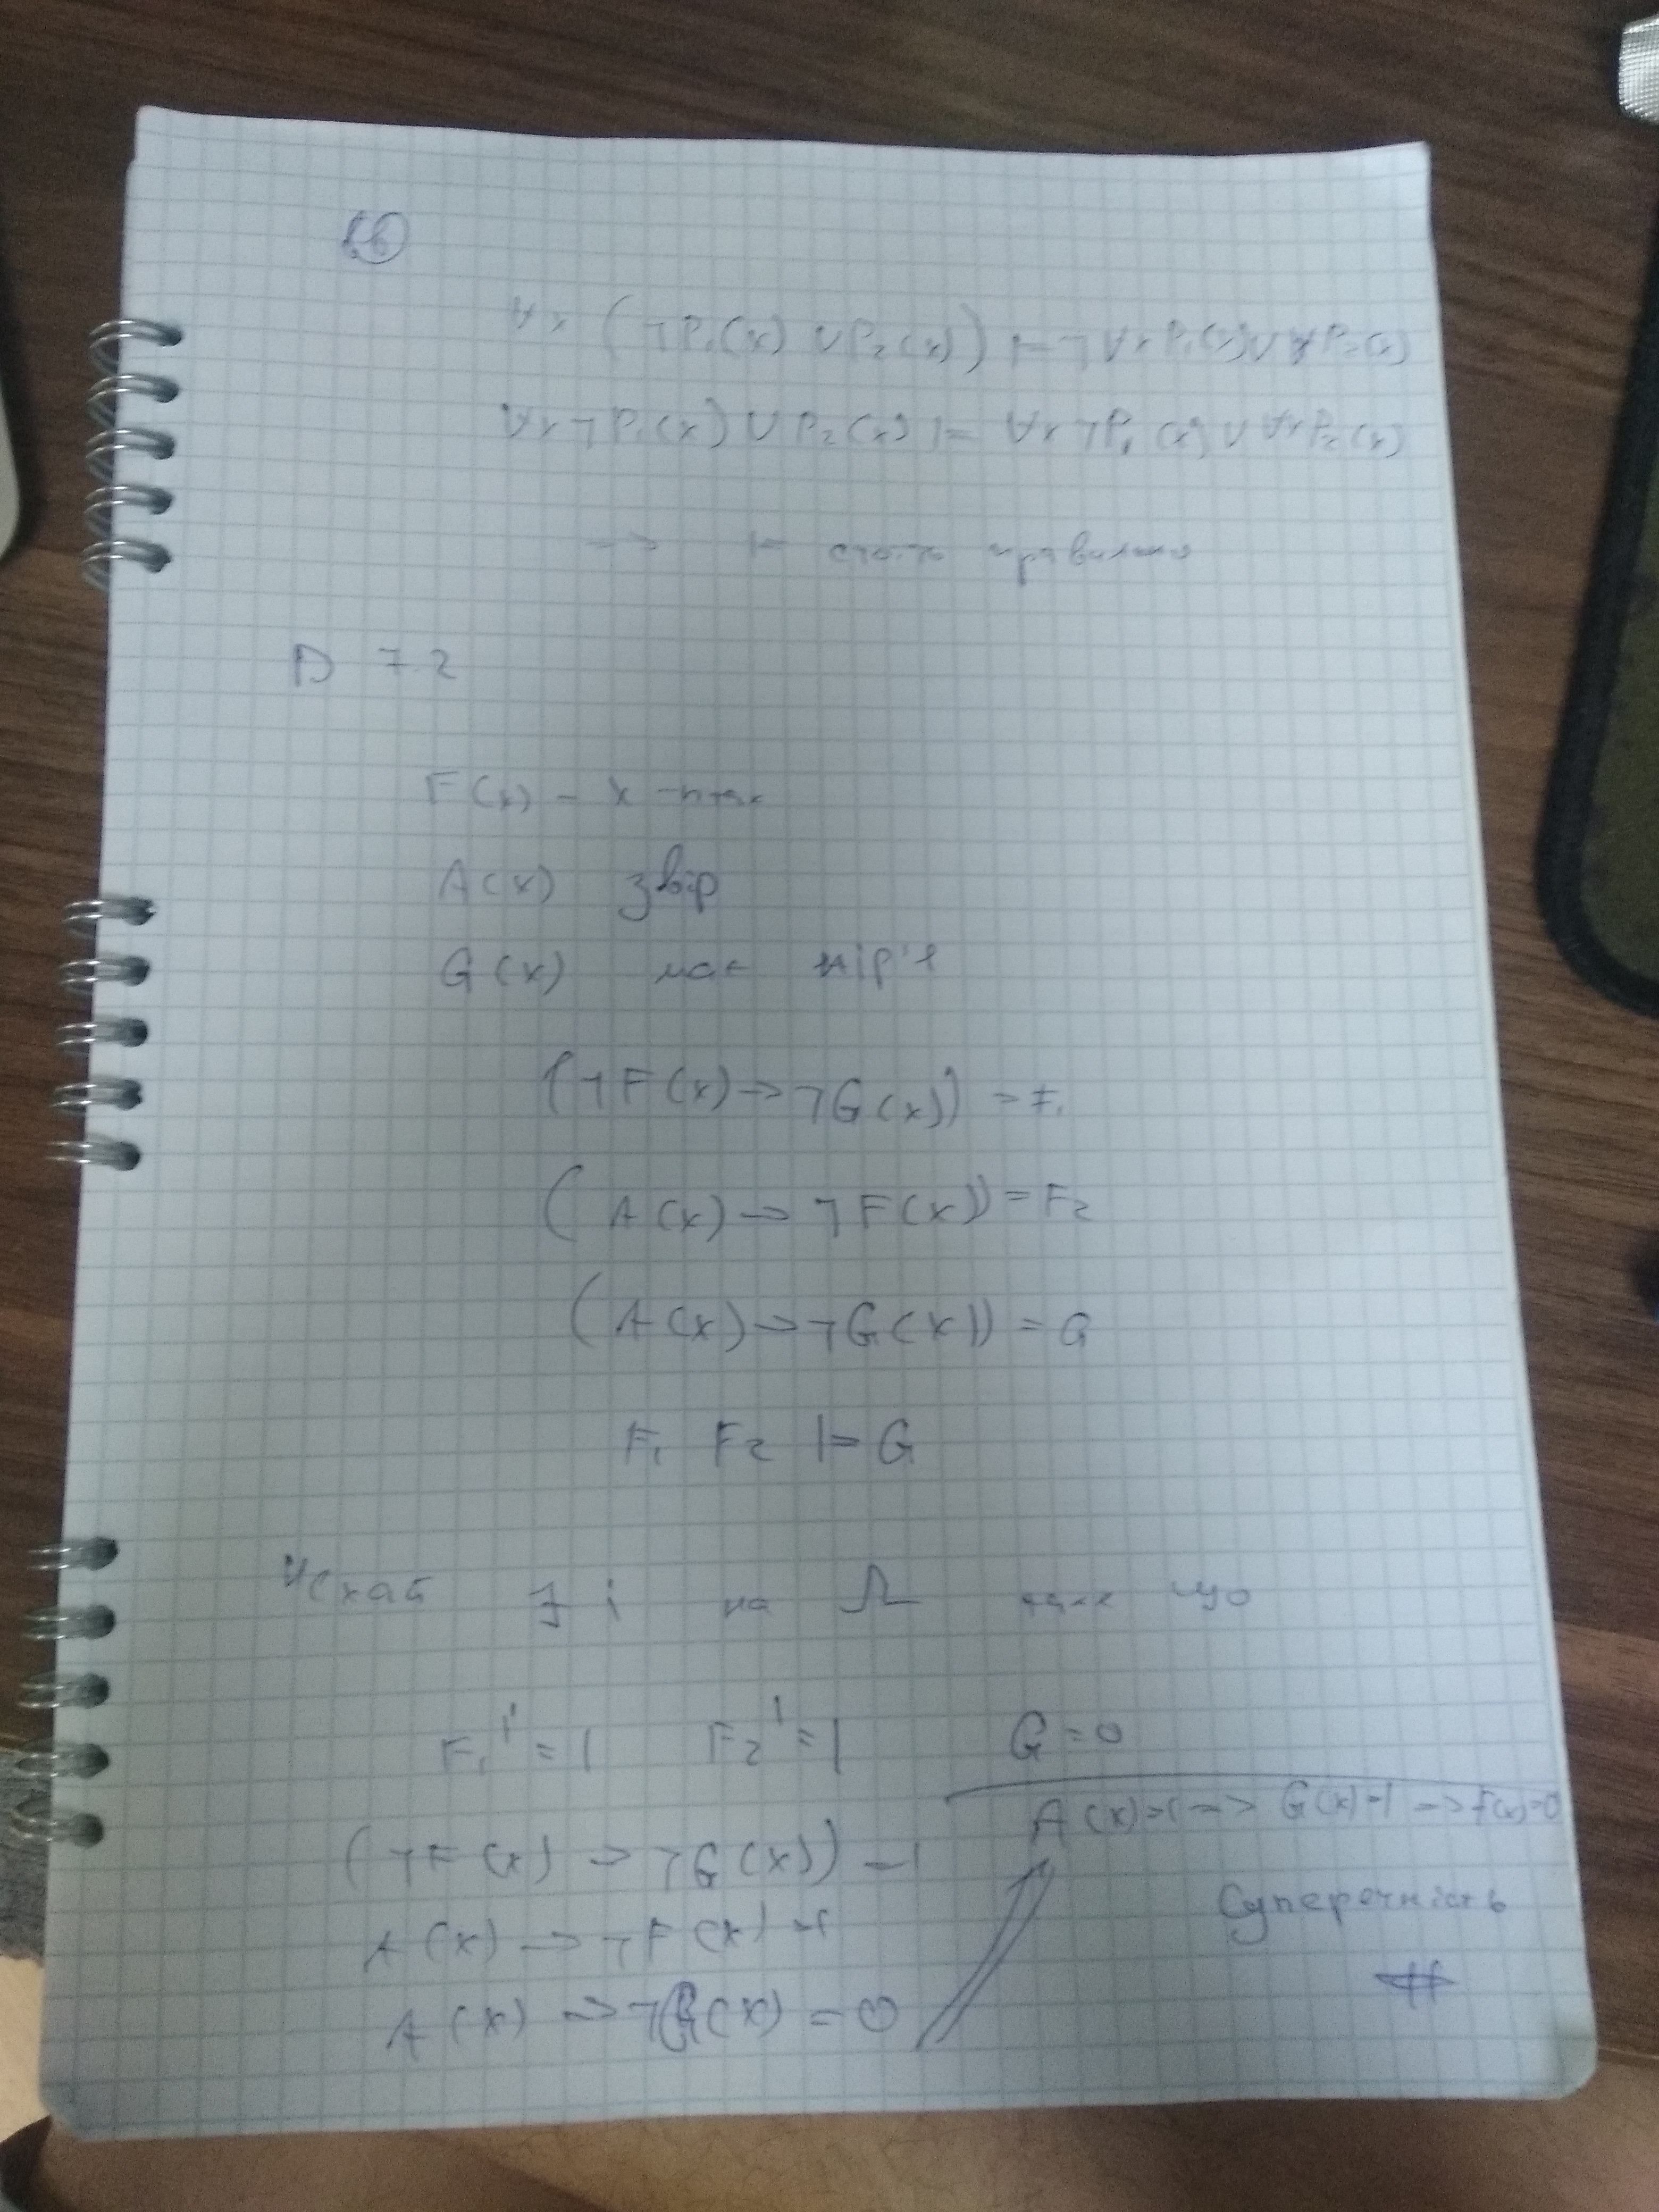 ∀x (¬P₁(x) ∨ P₂(x)) ⊢ ¬∀xP₁(x) ∨ ∀xP₂(x)
∀x ¬P₁(x) ∨ P₂(x) ⊨ ∀x ¬P₁(x) ∨ ∀xP₂(x)
-> ⊢ правильно
D 7.2
F(x) - x - птах
A(x) звір
G(x) має пір'я
(¬F(x) -> ¬G(x)) = F₁
(A(x) -> ¬F(x)) = F₂
(A(x) -> ¬G(x)) = G
F₁ F₂ ⊨ G
Нехай ∃ i на Ω таке що
F₁ⁱ = 1 F₂ⁱ = 1 G = 0
A(x)=1 => G(x)=1 -> F(x)=0
(¬F(x) -> ¬G(x)) = 1
A(x) -> ¬F(x) = 1
Суперечність
#
A(x) -> ¬G(x) = 0